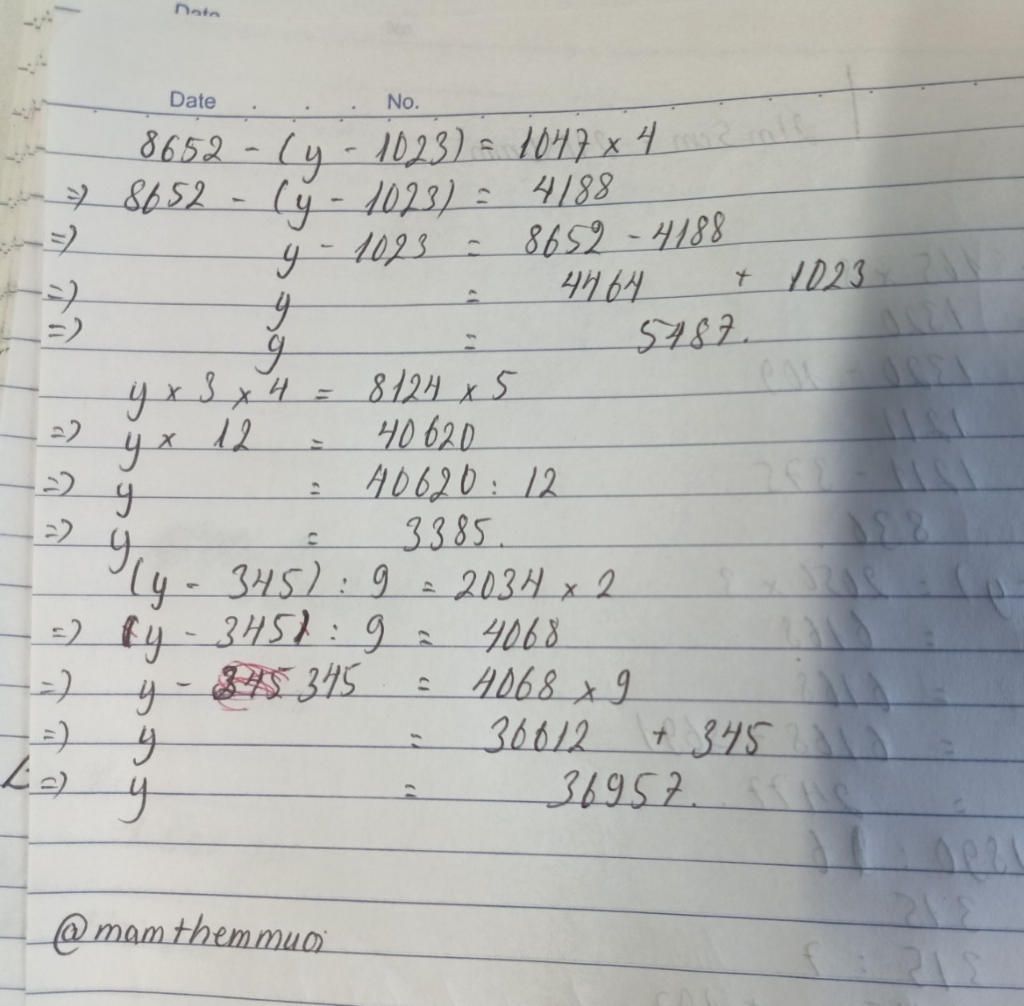 Date No.
8652 - (y - 1023) = 1047 x 4
=> 8652 - (y - 1023) = 4188
=> y - 1023 = 8652 - 4188
=> y = 4464 + 1023
=> y = 5487.
y x 3 x 4 = 8124 x 5
=> y x 12 = 40620
=> y = 40620 : 12
=> y = 3385.
(y - 345) : 9 = 2034 x 2
=> (y - 345) : 9 = 4068
=> y - 345 = 4068 x 9
=> y = 36612 + 345
=> y = 36957.
@mamthemmuoi